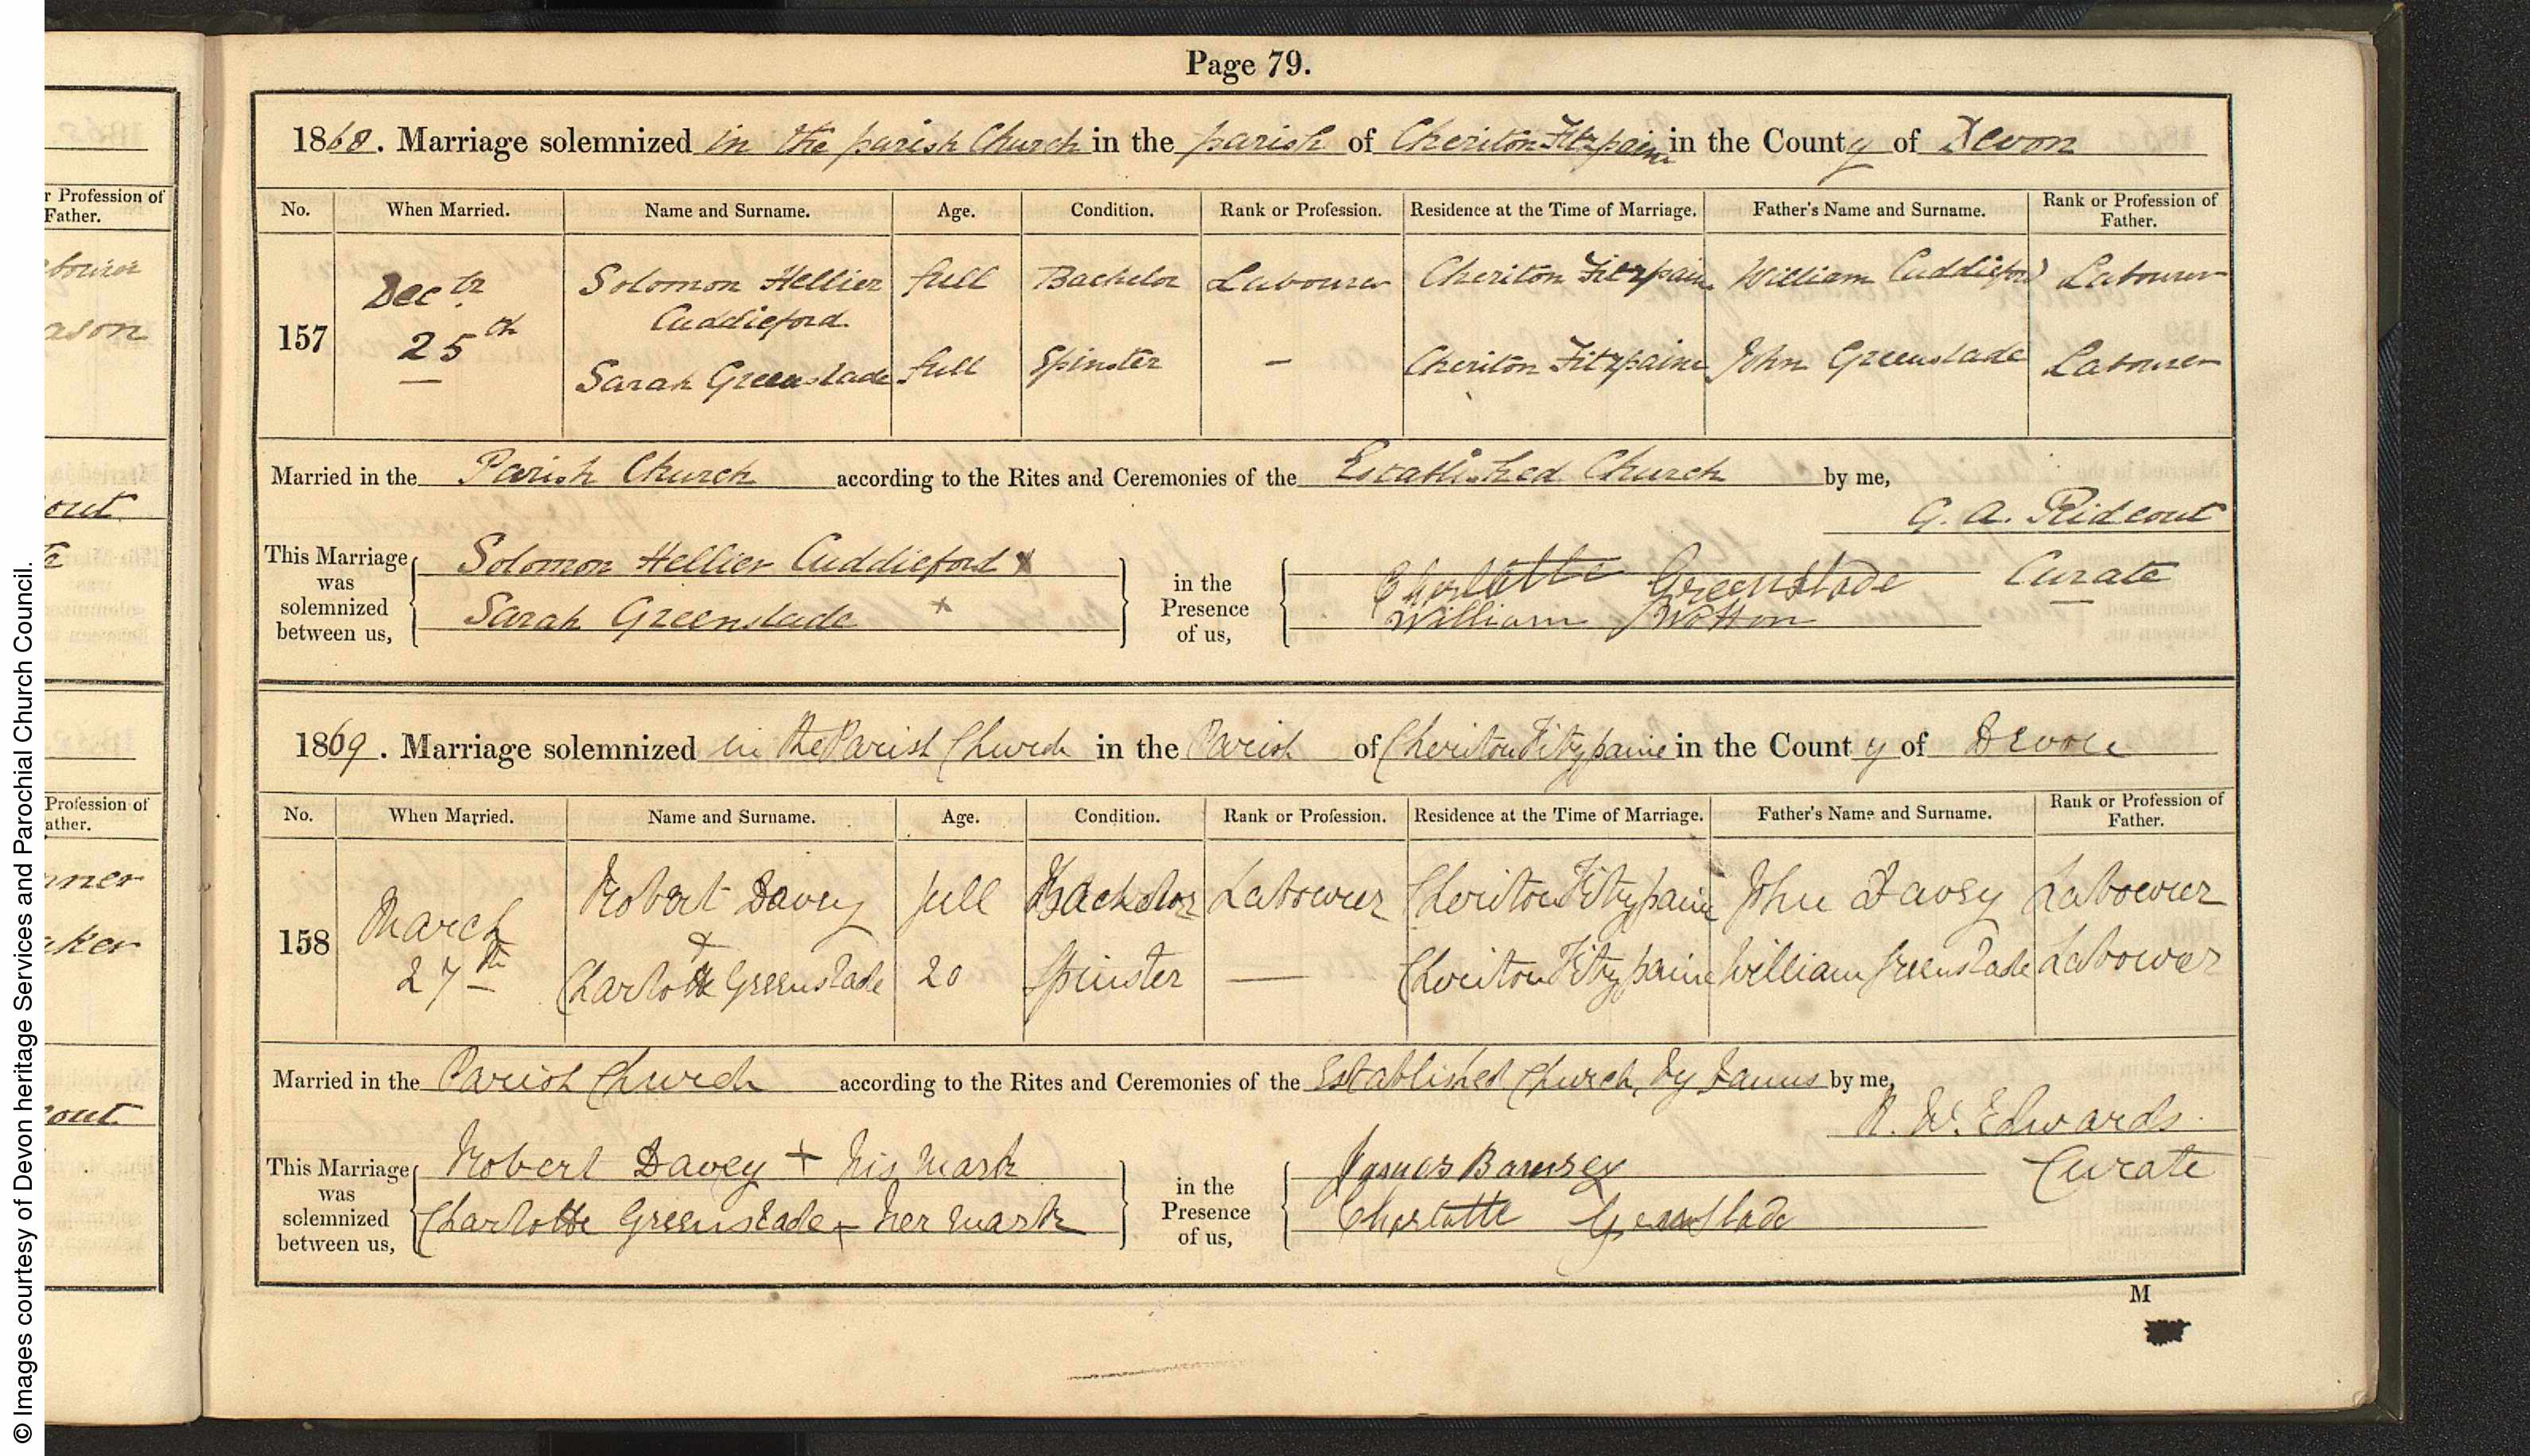 Page 79.
1868. Marriage solemnized in the parish Church in the parish of Cheriton Fitzpaine in the County of Devon
r Profession of
Father.
No. When Married. Name and Surname. Age. Condition. Rank or Profession. Residence at the Time of Marriage. Father's Name and Surname. Rank or Profession of Father.
157 Decbr 25th Solomon Hellier Cuddieford full Bachelor Labourer Cheriton Fitzpaine William Cuddieford Labourer
Sarah Greenslade full Spinster — Cheriton Fitzpaine John Greenslade Labourer
ason
Married in the Parish Church according to the Rites and Ceremonies of the Established Church by me,
G. A. Rideout
Curate
out
This Marriage was solemnized between us, Solomon Hellier Cuddieford x
Sarah Greenslade x
in the Presence of us, Charlotte Greenslade
William Wotton
1869. Marriage solemnized in the Parish Church in the Parish of Cheriton Fitzpaine in the County of Devon
Profession of
ather.
No. When Married. Name and Surname. Age. Condition. Rank or Profession. Residence at the Time of Marriage. Father's Name and Surname. Rank or Profession of Father.
158 March 27th Robert Davey full Bachelor Labourer Cheriton Fitzpaine John Davey Labourer
&
Charlotte Greenslade 20 Spinster — Cheriton Fitzpaine William Greenslade Labourer
nner
aker
Married in the Parish Church according to the Rites and Ceremonies of the Established Church, by Banns by me,
R. W. Edwards.
Curate
out
This Marriage was solemnized between us, Robert Davey + his mark
Charlotte Greenslade + her mark
in the Presence of us,
Charlotte Greenslade
M
© Images courtesy of Devon heritage Services and Parochial Church Council.